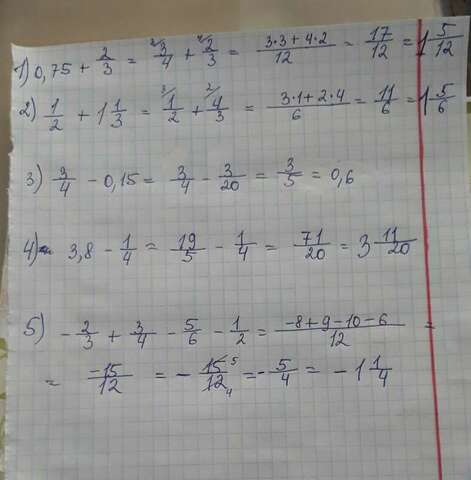 1) 0,75 + 2/3 = 3/4 + 2/3 = (3·3 + 4·2)/12 = 17/12 = 1 5/12
2) 1/2 + 1 1/3 = 1/2 + 4/3 = (3·1 + 2·4)/6 = 11/6 = 1 5/6
3) 3/4 - 0,15 = 3/4 - 3/20 = 3/5 = 0,6
4) 3,8 - 1/4 = 19/5 - 1/4 = 71/20 = 3 11/20
5) -2/3 + 3/4 - 5/6 - 1/2 = (-8 + 9 - 10 - 6)/12 =
= -15/12 = -15/12 5 4 = -5/4 = -1 1/4